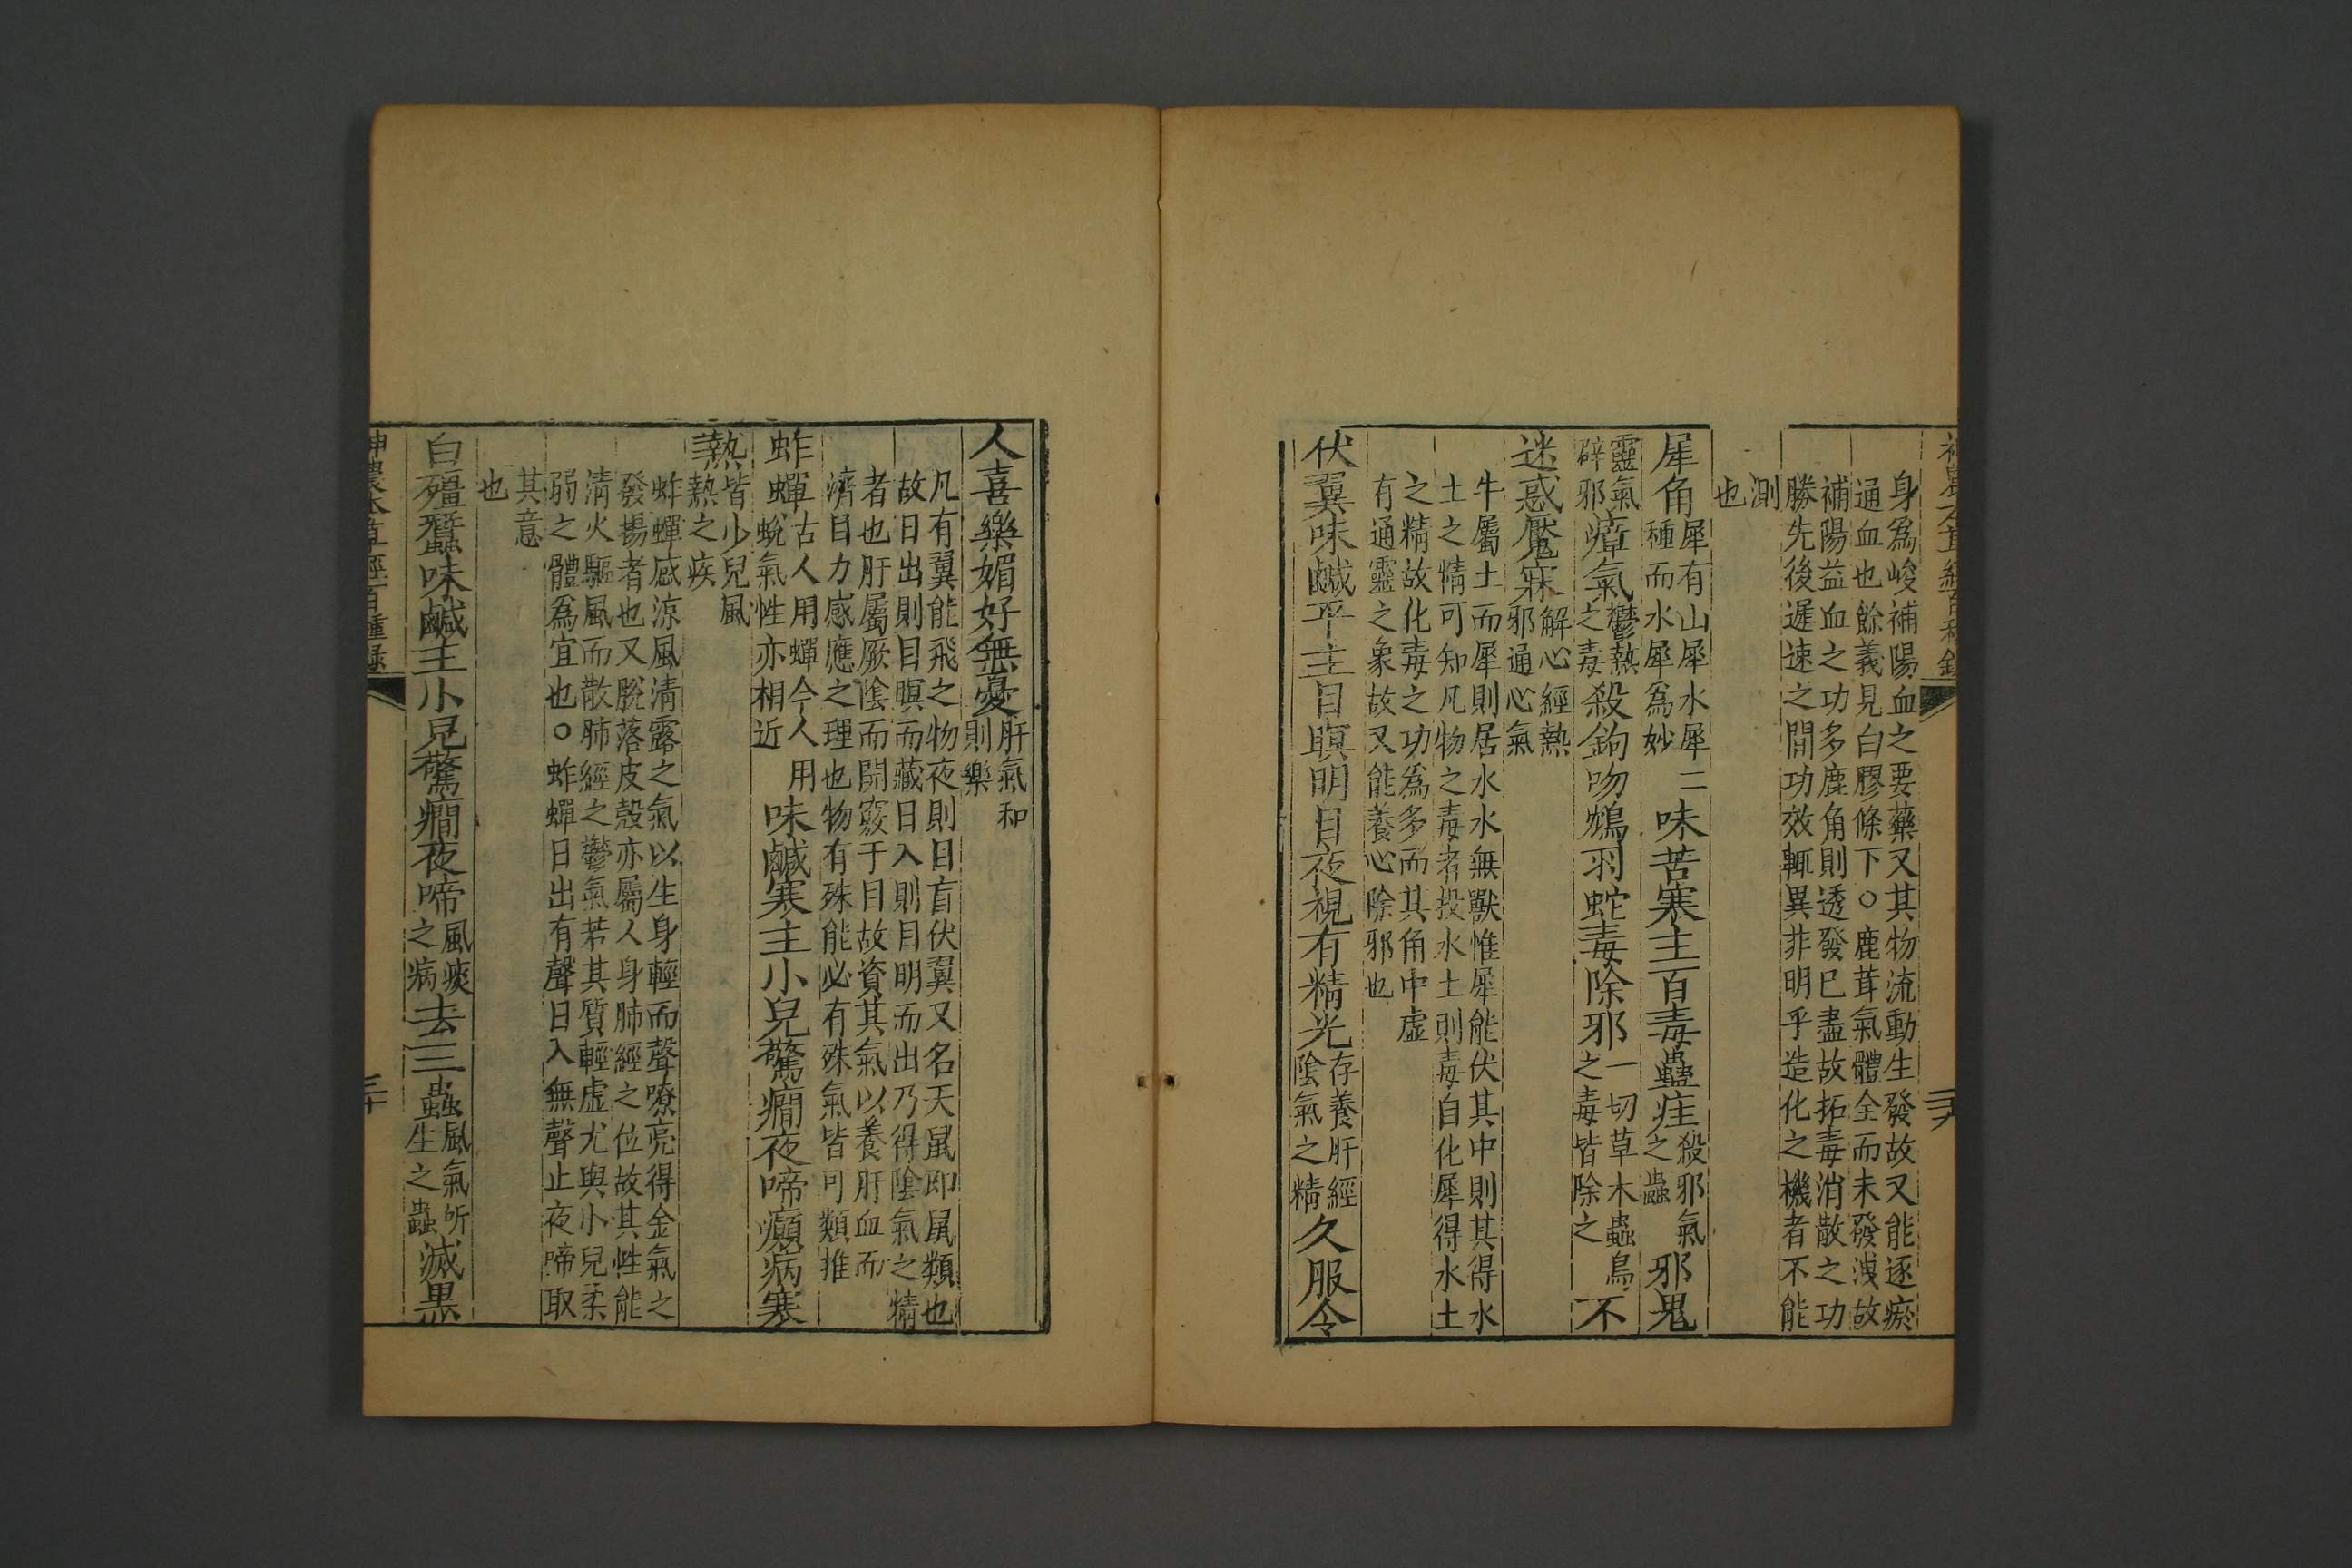 身爲峻補陽血之要藥又其物流動生發故又能逐瘀
通血也餘義見白膠條下○鹿茸氣體全而未發洩故
補陽益血之功多鹿角則透發已盡故拓毒消散之功
勝先後遲速之間功效輒異非明乎造化之機者不能
測
也
犀角犀有山犀水犀二種而水犀爲妙味苦寒主百毒蠱疰殺邪氣之蠱邪鬼
靈氣辟邪瘴氣鬱熱之毒殺鉤吻鴆羽蛇毒除邪一切草木蟲鳥之毒皆除之不
迷惑魘寐解心經熱邪通心氣
牛屬土而犀則居水水無獸惟犀能伏其中則其得水
土之精可知凡物之毒者投水土則毒自化犀得水土
之精故化毒之功爲多而其角中虛
有通靈之象故又能養心除邪也
伏翼味鹹平主目瞑明目夜視有精光存養肝經陰氣之精久服令
三十九
人喜樂媚好無憂肝氣和則樂
凡有翼能飛之物夜則目盲伏翼又名天鼠即鼠類也
故日出則目瞑而藏日入則目明而出乃得陰氣之精
者也肝屬厥陰而開竅于目故資其氣以養肝血而
濟目力感應之理也物有殊能必有殊氣皆可類推
蚱蟬古人用蟬今人用蛻氣性亦相近味鹹寒主小兒驚癇夜啼癲病寒
熱皆少兒風熱之疾
蚱蟬感涼風清露之氣以生身輕而聲嘹亮得金氣之
發揚者也又脫落皮殼亦屬人身肺經之位故其性能
清火驅風而散肺經之鬱氣若其質輕虛尤與小兒柔
弱之體爲宜也○蚱蟬日出有聲日入無聲止夜啼取
其意
也
白殭蠶味鹹主小兒驚癇夜啼風痰之病去三蟲風氣所生之蟲滅黑
神農本草經百種錄